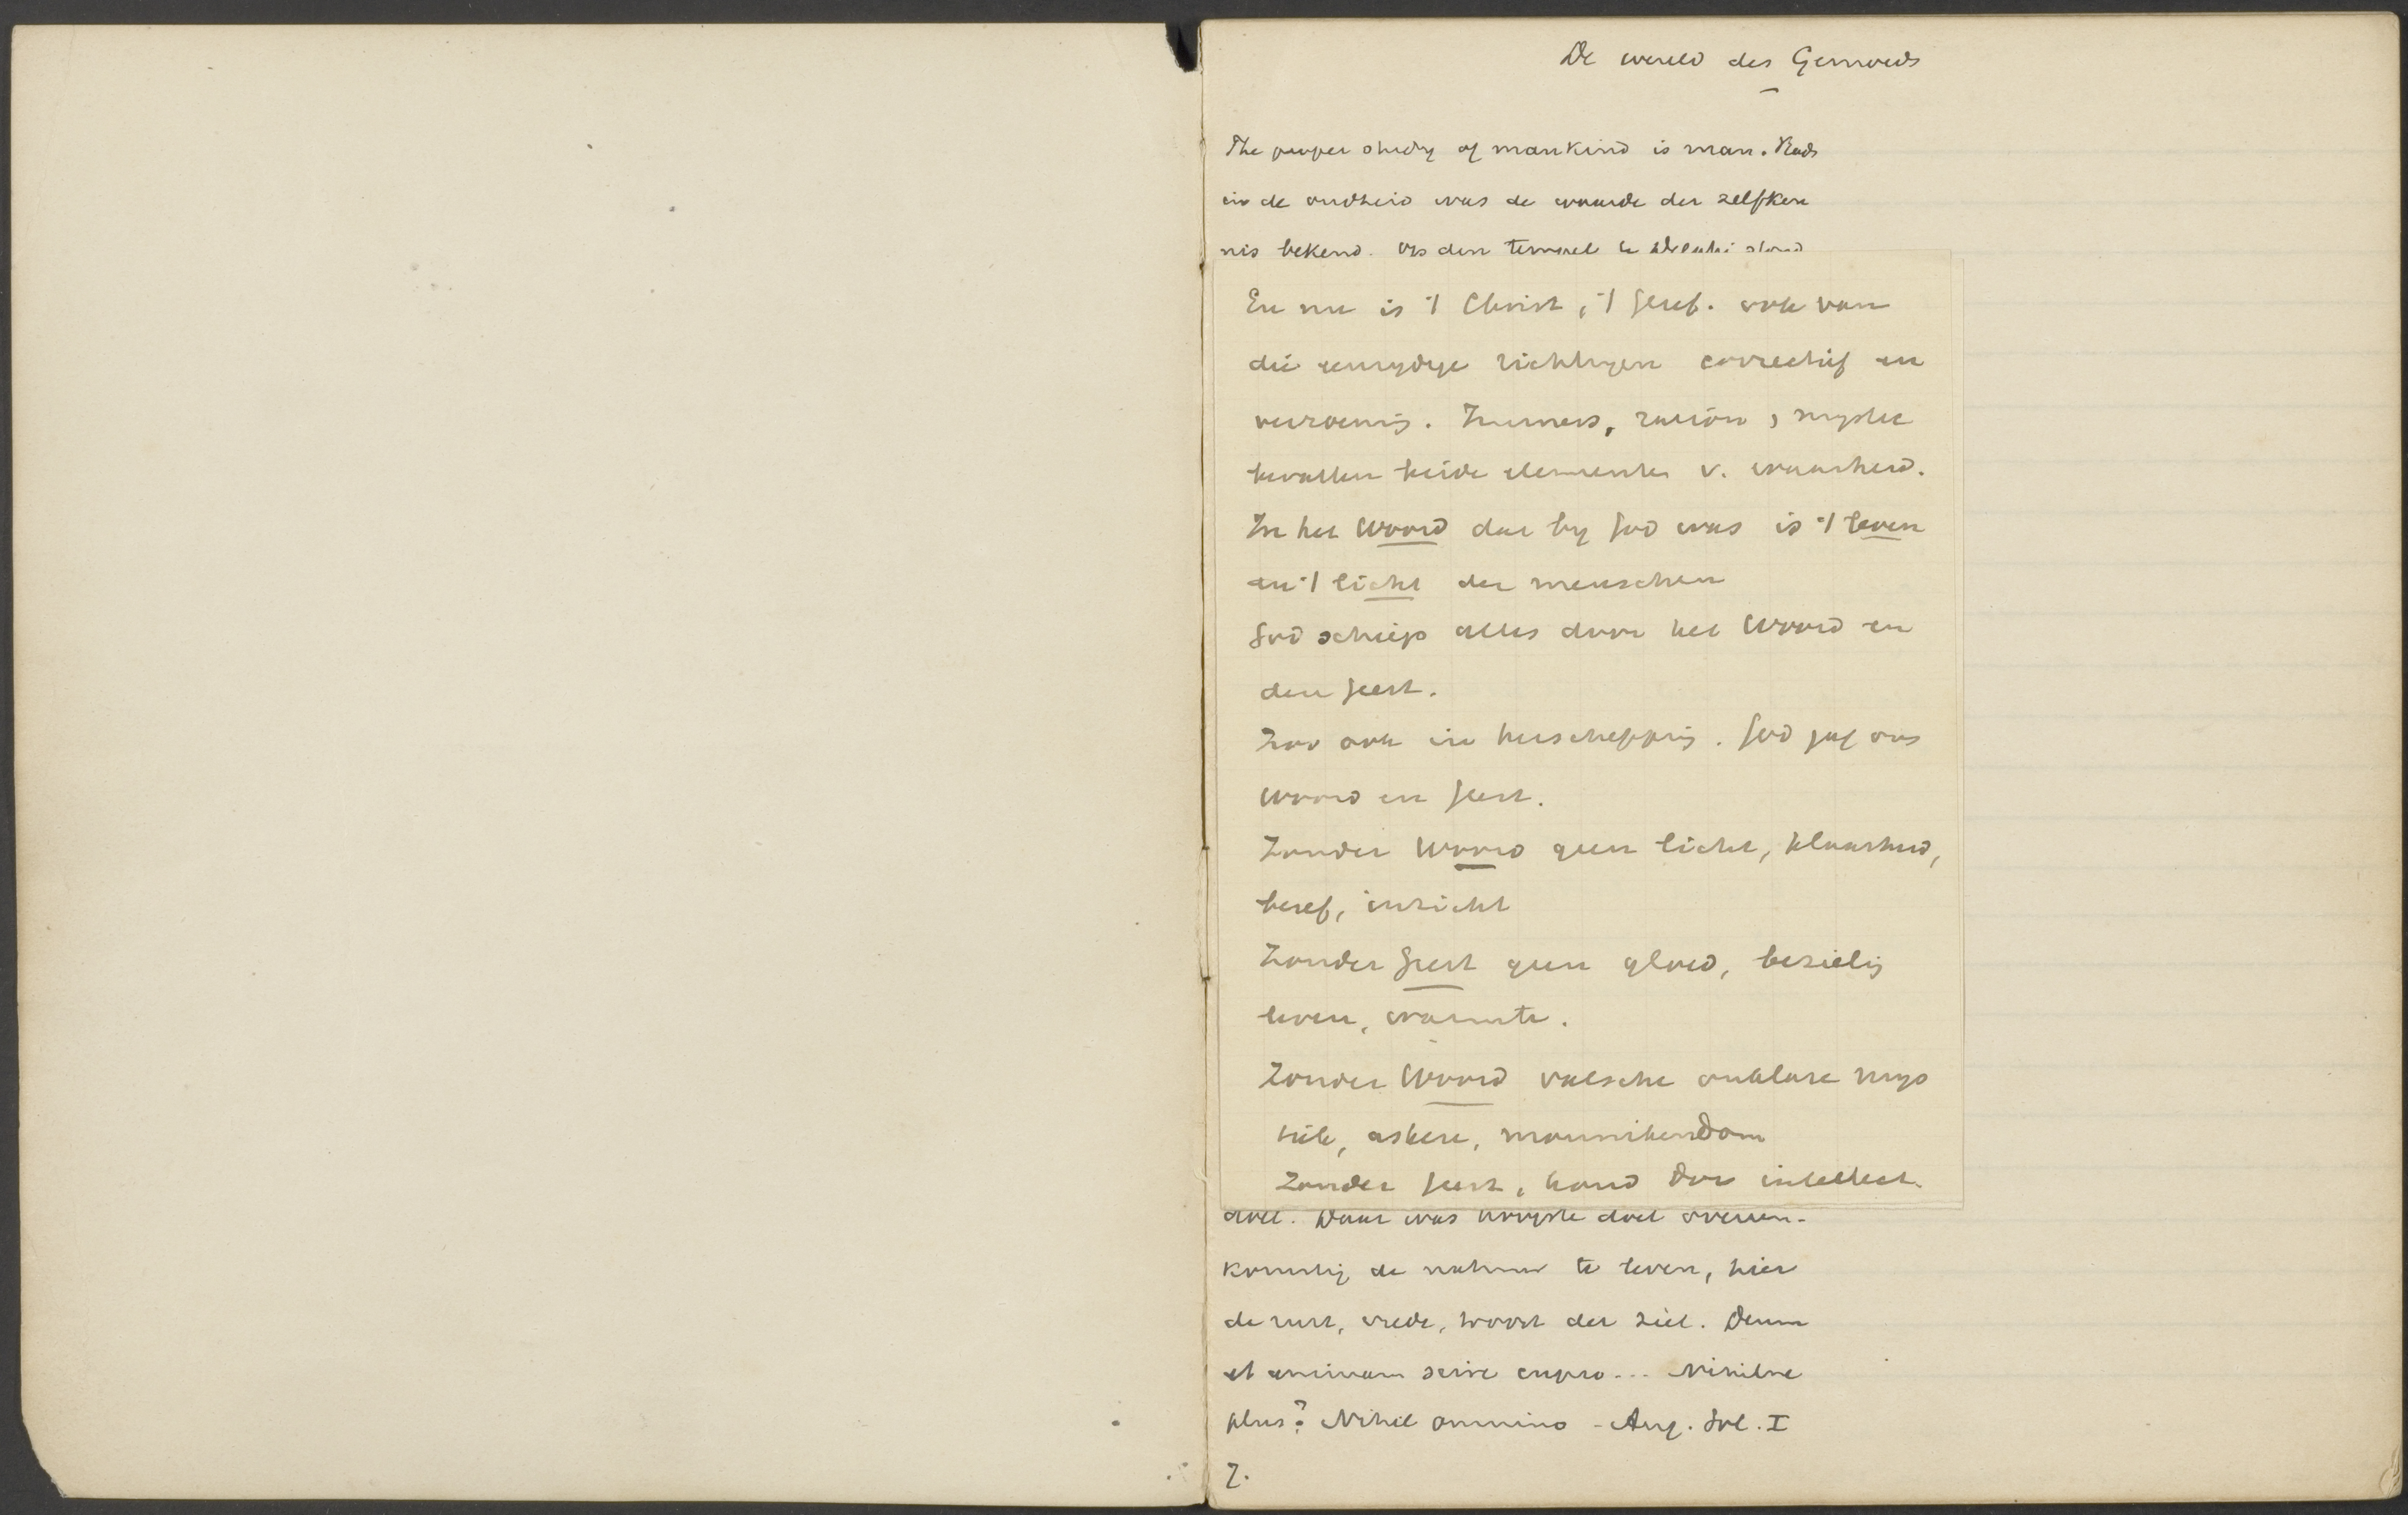 De wereld des Gemoeds
The proper study of mankind is man. Reeds
in de oudheid was de waarde der zelfken
nis bekend. Op den tempel te Delphi stond
En nu is 't Christ, 't Geref. ook van
die eenzydige richtingen correctief en
verzoening. Zwarness, ration, mystic
bevatten beide elementen v. waarheid.
In het Woord dat by God was is 't leven
en 't licht der menschen
God schiep alles door het Woord en
den Geest.
Zoo ook in herschepping. God gaf ons
Woord en Geest.
Zonder Woord geen licht, klaarheid,
besef, inzicht
Zonder Geest geen gloed, bezieling
leven, warmte.
Zonder Woord valsche onklare mys
tiek, askese, monnikendom
Zonder Geest, koud dor intellect.
doel. Daar was hoogste doel overeen-
komstig de natuur te leven, hier
de rust, vrede, troost der ziel. Deum
et animam scire cupio... Nihilne
plus? Nihil omnino - Aug. Sol. I
7.